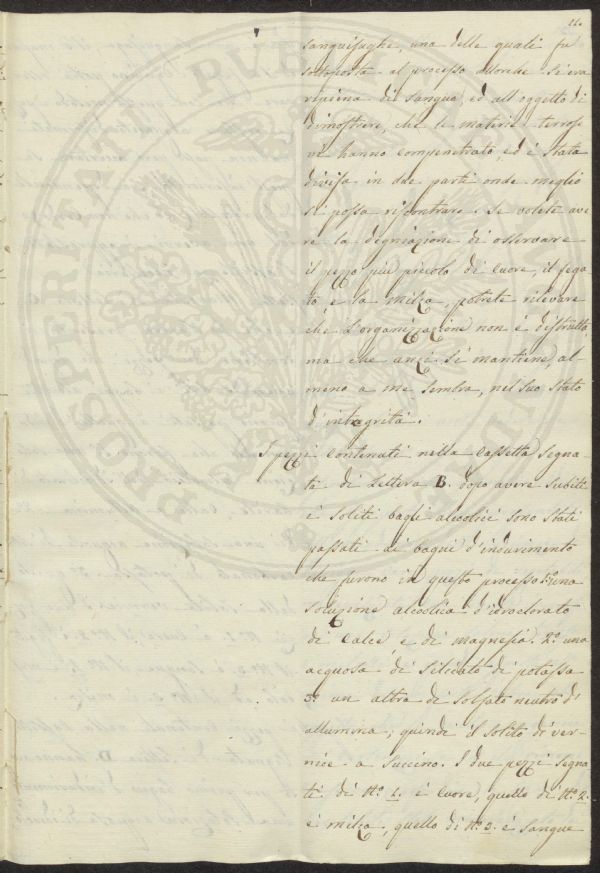 11.
sanguisughe, una delle quali fu
sottoposta al processo allorchè si era
ripiena di sangue, ed all'oggetto di
dimostrare, che le materie terrose
ve hanno compenetrato, ed è stata
divisa in due parti onde meglio
si possa riscontrare. Se volete ave
re la degnazione di osservare
il pezzo più piccolo di cuore, il fega
to e la milza, potrete rilevare
che l'organizzazione non è distrutta,
ma che anzi si mantiene, al
meno a me sembra, nel suo stato
d'integrità.
I pezzi contenuti nella cassetta segna
ta di lettera B. dopo avere subiti
i soliti bagni alcolici sono stati
passati ai bagni d'indurimento
che furono in questo processo 1° una
soluzione alcolica d'idroclorato
di calce e di magnesia. 2° una
acquosa di silicato di potassa
3° un altra di solfato neutro d'
allumina; quindi il solito di ver-
nice a succino. I due pezzi segna
ti di N° 1. è cuore, quello di N° 2.
è milza, quello di N° 3. è sangue
PROSPERITATI PUBLICAE